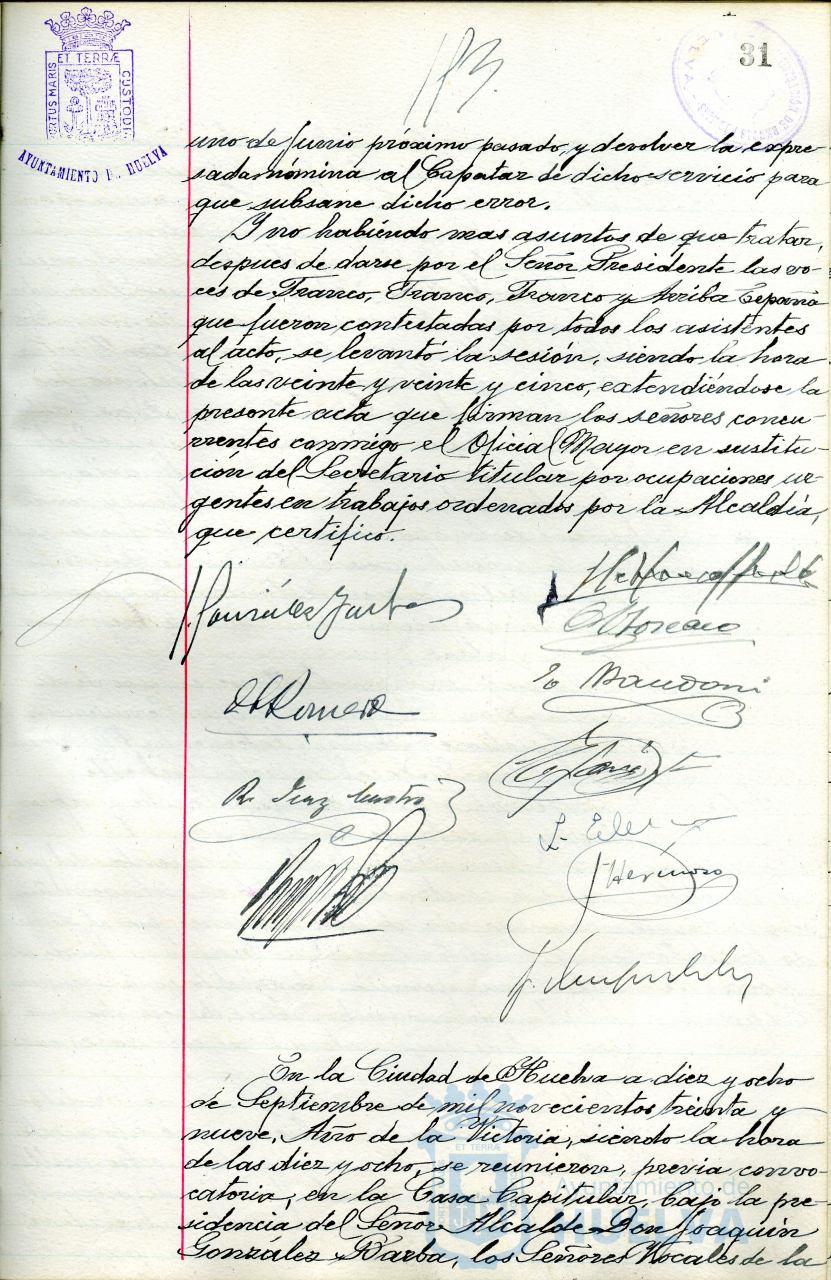 31
ET TERRÆ
CUSTODI
AYUNTAMIENTO DE HUELVA
uno de Junio próximo pasado, y devolver la expre-
sada nómina al Capataz de dicho servicio para
que subsane dicho error.
Y no habiendo mas asuntos de que tratar,
despues de darse por el Señor Presidente las vo-
ces de Franco, Franco, Franco y Arriba España
que fueron contestadas por todos los asistentes
al acto, se levantó la sesión, siendo la hora
de las veinte y veinte y cinco, extendiéndose la
presente acta que firman los señores concu-
rrentes conmigo el Oficial Mayor en sustitu-
ción del Secretario titular por ocupaciones ur-
gentes en trabajos ordenados por la Alcaldía,
que certifico.
J. González Barba
Romero
R. Díaz
J Hermoso
En la Ciudad de Huelva a diez y ocho
de Septiembre de mil novecientos treinta y
nueve, Año de la Victoria, siendo la hora
de las diez y ocho, se reunieron, previa convo-
catoria, en la Casa Capitular, bajo la pre-
sidencia del Señor Alcalde Don Joaquín
González Barba, los Señores Vocales de la
Ayuntamiento de
HUELVA